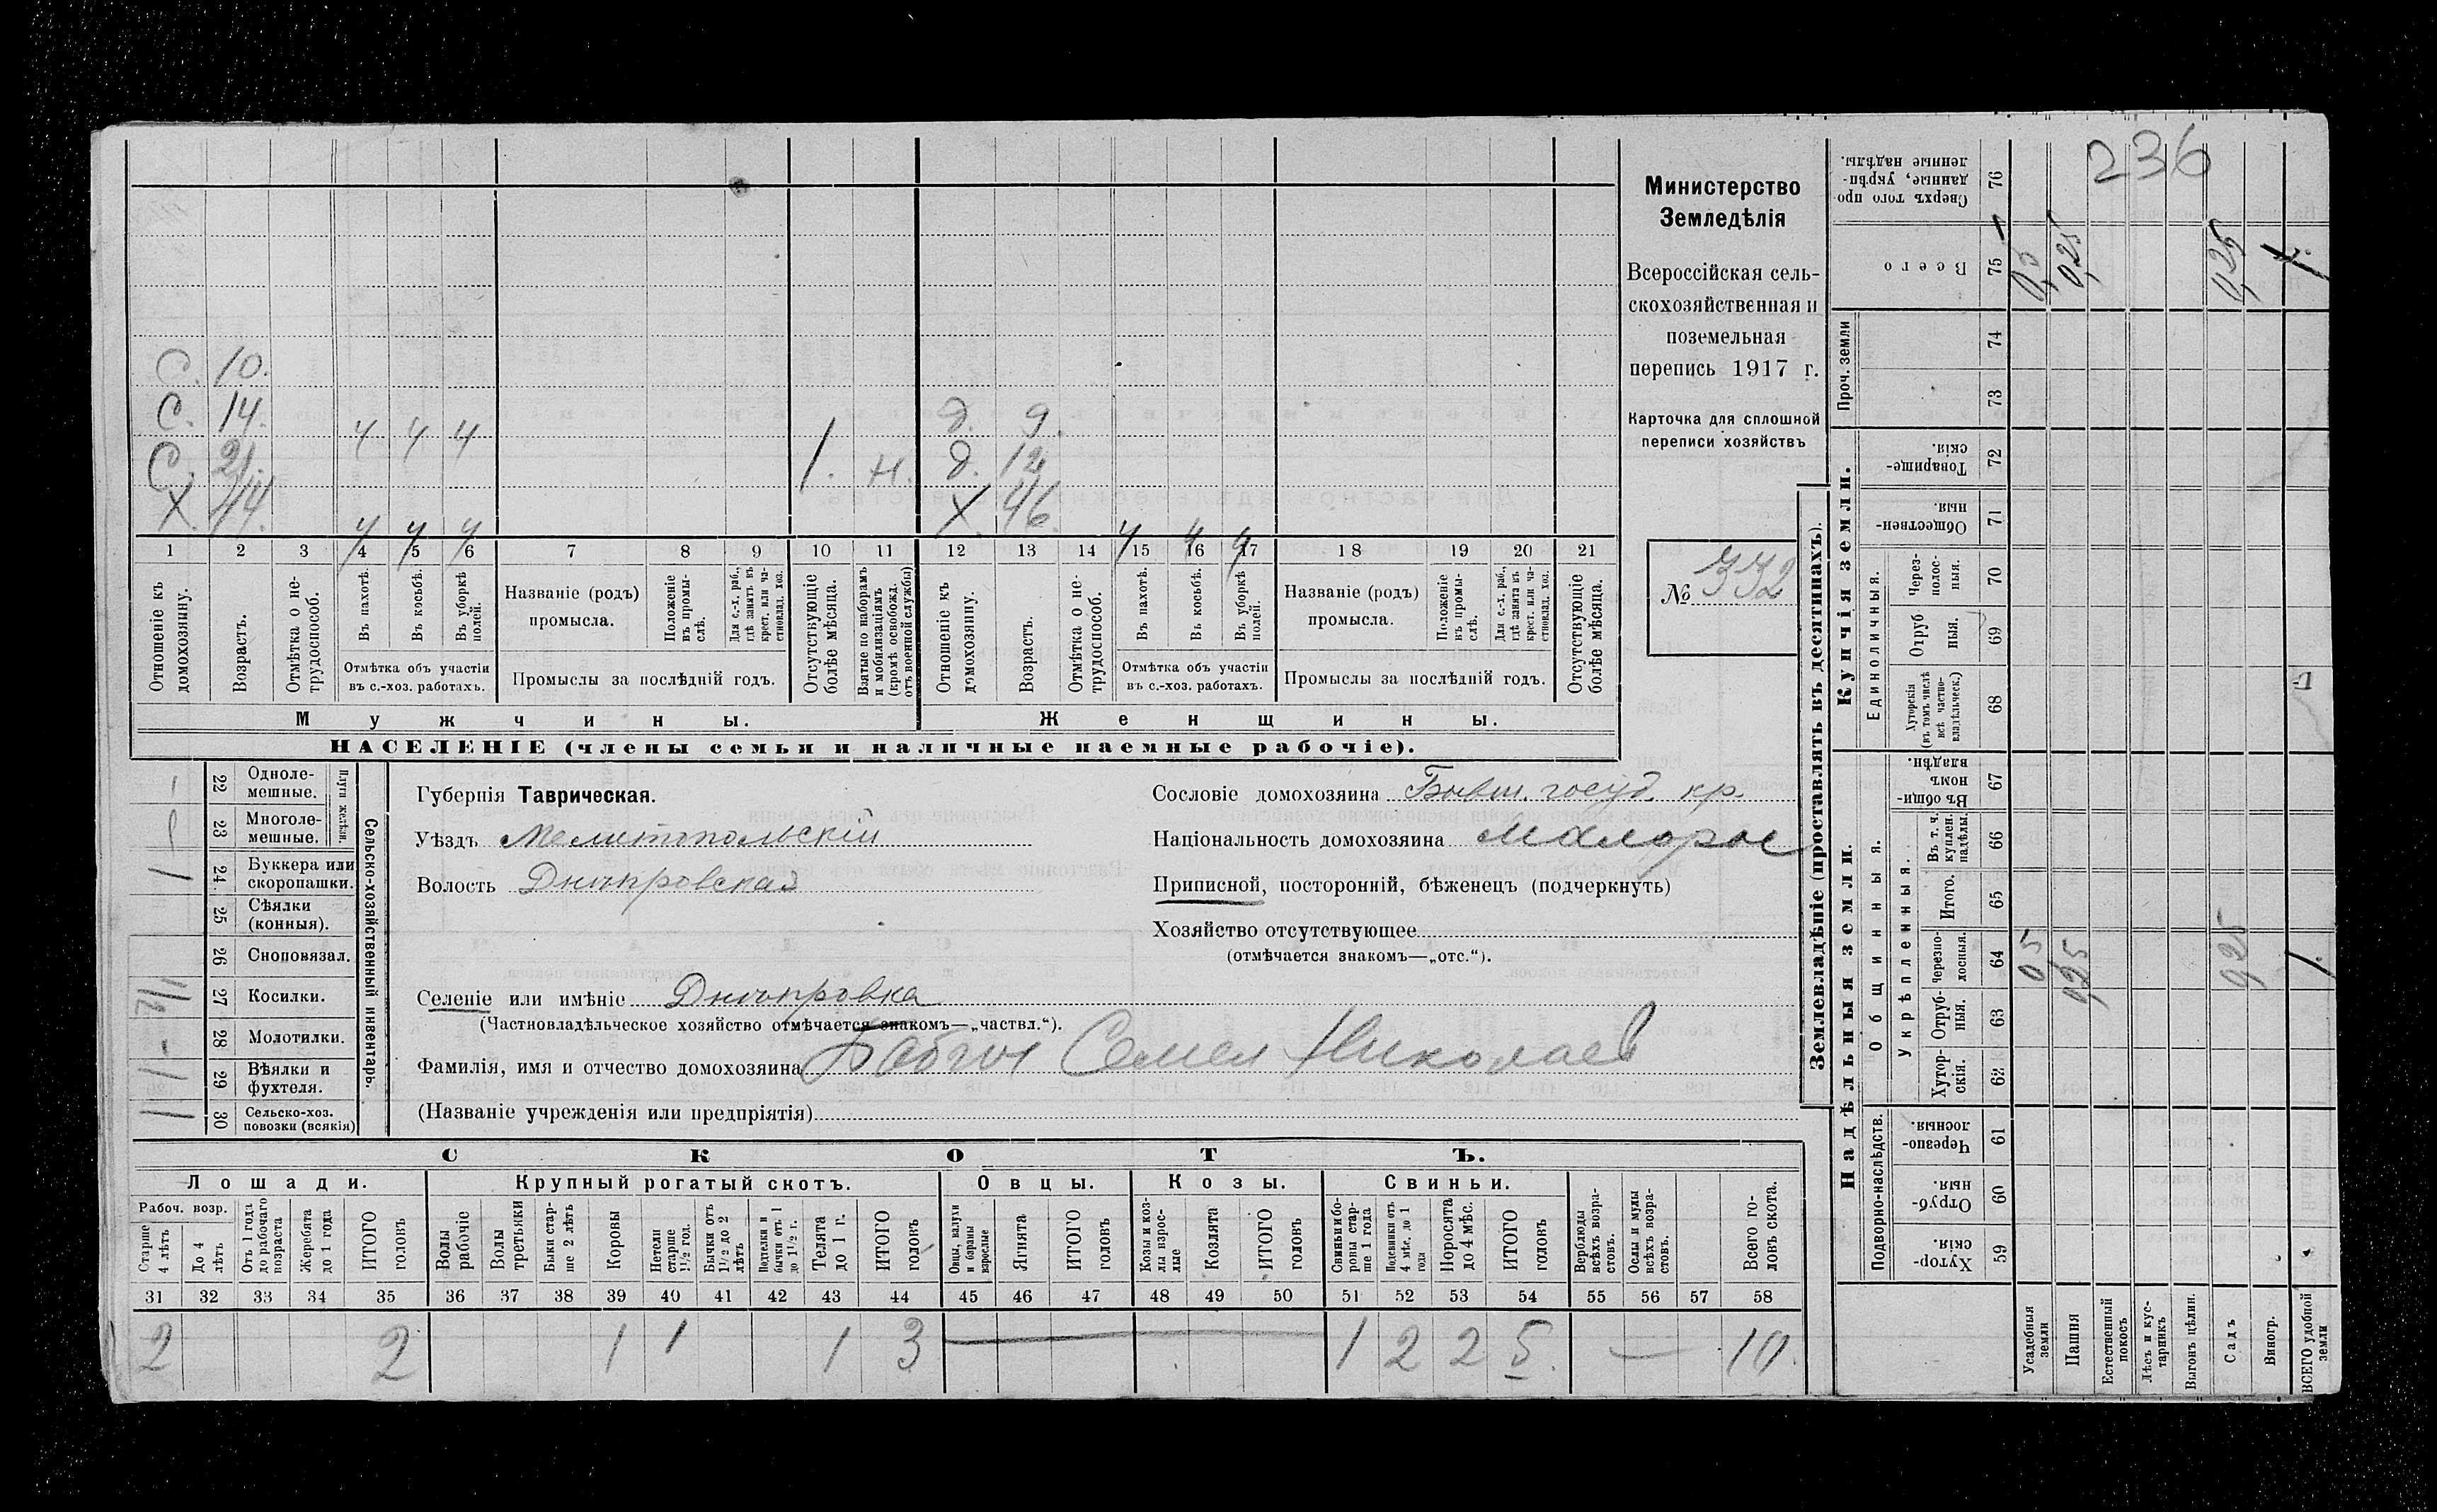 236
С. 10.
С. 14. 4 4 4 д. 9.
С. 21. 1. н. д. 12
Х. 44. 4 4 4 Х 46. 4 4 4
1 2 3 4 5 6 7 8 9 10 11 12 13 14 15 16 17 18 19 20 21
Отношеніе къ домохозяину.
Возрастъ.
Отмѣтка о не-трудоспособ.
Въ пахотѣ.
Въ косьбѣ.
Въ уборкѣ полей.
Отмѣтка объ участіи въ с.-хоз. работахъ.
Названіе (родъ) промысла.
Положеніе въ промы-слѣ.
Для с.-х. раб., гдѣ занятъ въ крест. или ча-стновлад. хоз.
Промыслы за послѣдній годъ.
Отсутствующіе болѣе мѣсяца.
Взятые по наборамъ и мобилизаціямъ (кромѣ освобожд. отъ военной службы)
Отношеніе къ домохозяину.
Возрастъ.
Отмѣтка о не-трудоспособ.
Въ пахотѣ.
Въ косьбѣ.
Въ уборкѣ полей.
Отмѣтка объ участіи въ с.-хоз. работахъ.
Названіе (родъ) промысла.
Положеніе въ промы-слѣ.
Для с.-х. раб., гдѣ занята въ крест. или ча-стновлад. хоз.
Промыслы за послѣдній годъ.
Отсутствующіе болѣе мѣсяца.
Мужчины. Женщины.
НАСЕЛЕНІЕ (члены семьи и наличные наемные рабочіе).
Министерство
Земледѣлія
Всероссійская сель-
скохозяйственная и
поземельная
перепись 1917 г.
Карточка для сплошной
переписи хозяйствъ
№ 332
22 Одноле-мешные.
23 Многоле-мешные.
Плуги желѣзн.
24 Буккера или скоропашки. 1
25 Сѣялки (конныя).
26 Сноповязал.
27 Косилки.
28 Молотилки. -
29 Вѣялки и фухтеля. 1
30 Сельско-хоз. повозки (всякія)
Сельско-хозяйственный инвентарь.
Губернія Таврическая.
Уѣздъ Мелитопольскій
Волость Днѣпровская
Селеніе или имѣніе Днѣпровка
(Частновладѣльческое хозяйство отмѣчается знакомъ—„частвл.“).
Фамилія, имя и отчество домохозяина Семен Николаев
(Названіе учрежденія или предпріятія)
Сословіе домохозяина Бывш. госуд. кр.
Національность домохозяина малорос
Приписной, посторонній, бѣженецъ (подчеркнуть)
Хозяйство отсутствующее
(отмѣчается знакомъ—„отс.“).
СКОТЪ.
Лошади. Крупный рогатый скотъ. Овцы. Козы. Свиньи.
Рабоч. возр.
Старше 4 лѣтъ
До 4 лѣтъ
Отъ 1 года до рабочаго возраста
Жеребята до 1 года
ИТОГО головъ
Волы рабочіе
Волы третьяки
Быки стар-ше 2 лѣтъ
Коровы
Нетели старше 1½ год.
Бычки отъ 1½ до 2 лѣтъ
Подтелки и бычки отъ 1 до 1½ г.
Телята до 1 г.
ИТОГО головъ
Овцы, валухи и бараны взрослые
Ягнята
ИТОГО головъ
Козы и коз-лы взрос-лые
Козлята
ИТОГО головъ
Свиньи и бо-ровы стар-ше 1 года
Подсвинки отъ 4 мѣс. до 1 года
Поросята до 4 мѣс.
ИТОГО головъ
Верблюды всѣхъ возра-стовъ.
Ослы и мулы всѣхъ возра-стовъ.
Всего го-ловъ скота.
31 32 33 34 35 36 37 38 39 40 41 42 43 44 45 46 47 48 49 50 51 52 53 54 55 56 57 58
2 2 1 1 1 3 1 2 2 5. — 10.
Землевладѣніе (проставлять въ десятинахъ).
Проч. земли
Купчія земли.
Единоличныя.
Надѣльныя земли.
Общинныя.
Укрѣпленныя.
Подворно-наслѣдств.
76 Сверхъ того про-даные, укрѣп-ленные надѣлы.
75 Всего 0,5 0,25 0,25 1.
74
73
72 Товарище-скія.
71 Обществен-ныя.
70 Через-полос-ныя.
69 Отруб-ныя.
68 Хуторскія (въ томъ числѣ всѣ частно-владѣльческ.)
67 Въ общин-номъ владѣн.
66 Въ т. ч. куплен. надѣлы.
65 Итого.
64 Черезпо-лосныя. 0,5 0,25 0,25 1.
63 Отруб-ныя.
62 Хутор-скія.
61 Черезпо-лосныя.
60 Отруб-ныя.
59 Хутор-скія.
Усадебныя земли
Пашня
Естественный покосъ
Лѣсъ и кус-тарникъ
Выгонъ цѣлин.
Садъ
Виногр.
ВСЕГО удобной земли